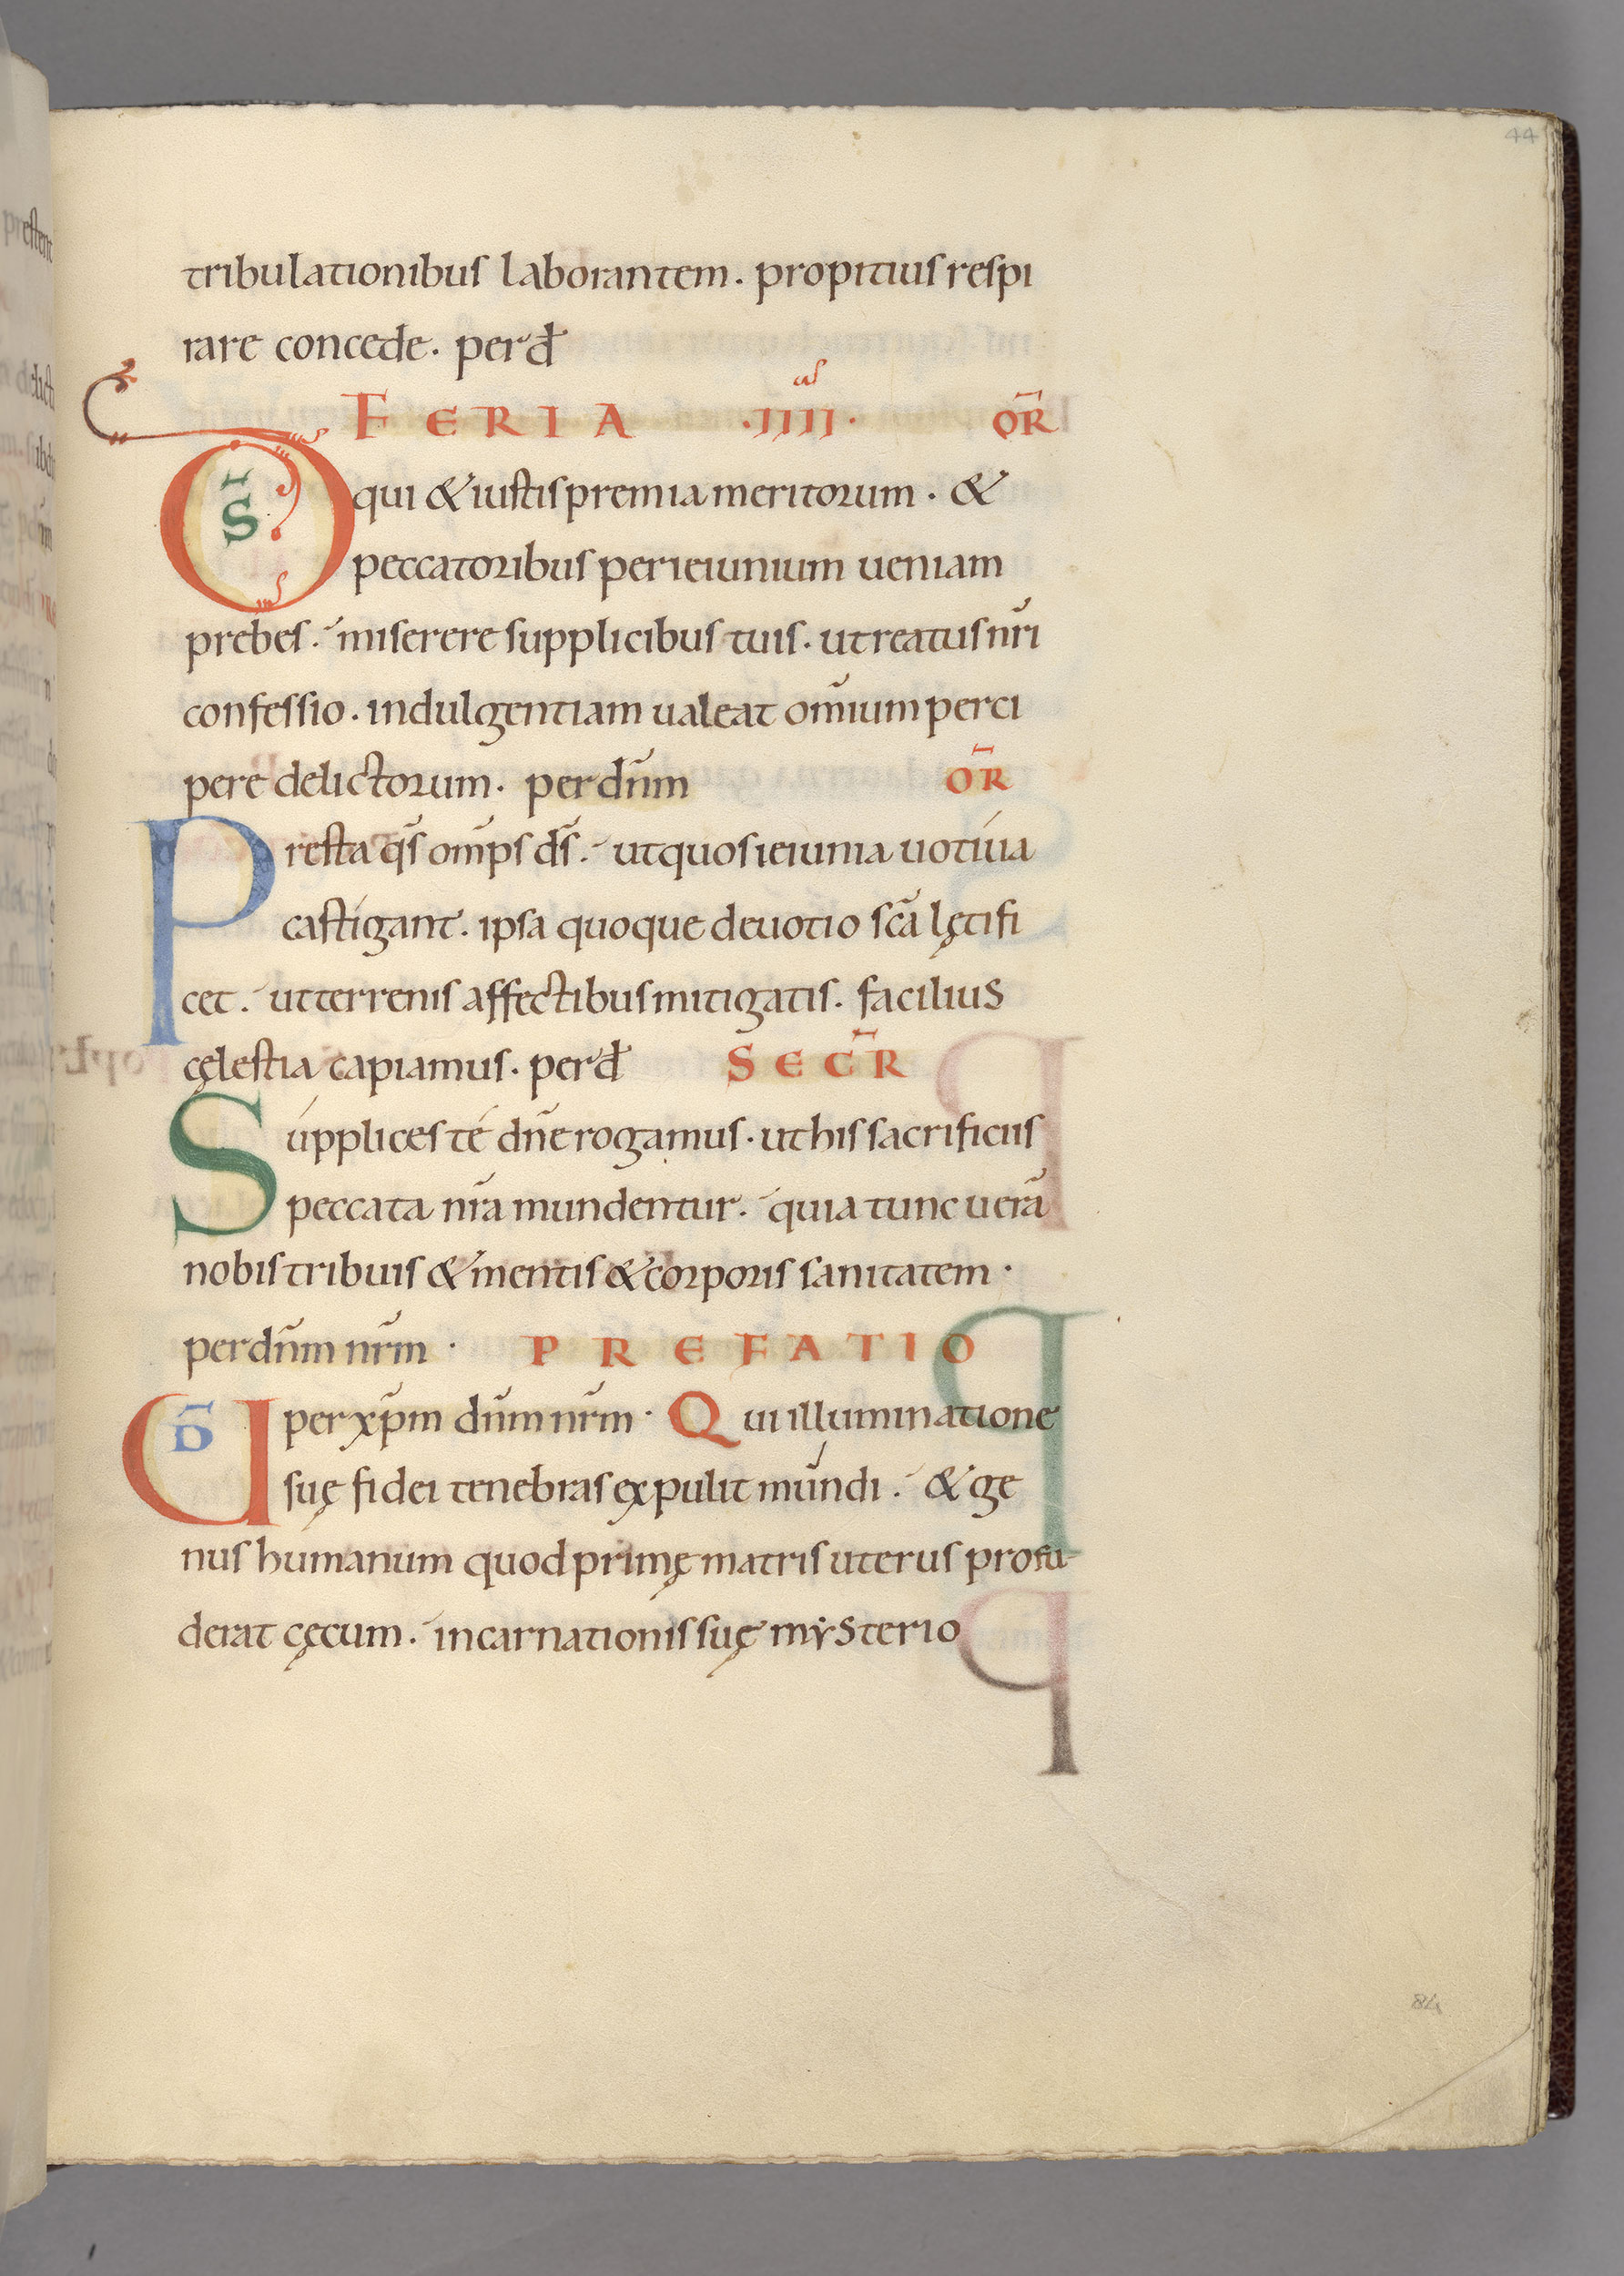 44
tribulationibus laborantem. propitius respi
rare concede. per dʼ
FERIA .IIII. OR̄
D̄S qui & iustis premia meritorum. &
peccatoribus per ieiunium ueniam
prebes. miserere supplicibus tuis. ut reatus nr̄i
confessio. indulgentiam ualeat om̄ium perci
pere delictorum. per dn̄m OR̄
Presta qs̄ om̄ps ds̄. ut quos ieiunia uotiua
castigant. ipsa quoque deuotio sc̄a lętifi
cet. ut terrenis affectibus mitigatis. facilius
cęlestia capiamus. per d SECR̄
Supplices te dn̄e rogamus. ut his sacrificiis
peccata nr̄a mundentur. quia tunc uerā
nobis tribuis & mentis & corporis sanitatem.
per dn̄m nr̄m. PREFATIO
UD̄ per xp̄m dn̄m nr̄m. Qui illuminatione
suę fidei tenebras expulit mundi. & ge
nus humanum quod primę matris uterus profu
derat cęcum. incarnationis suę mysterio
84